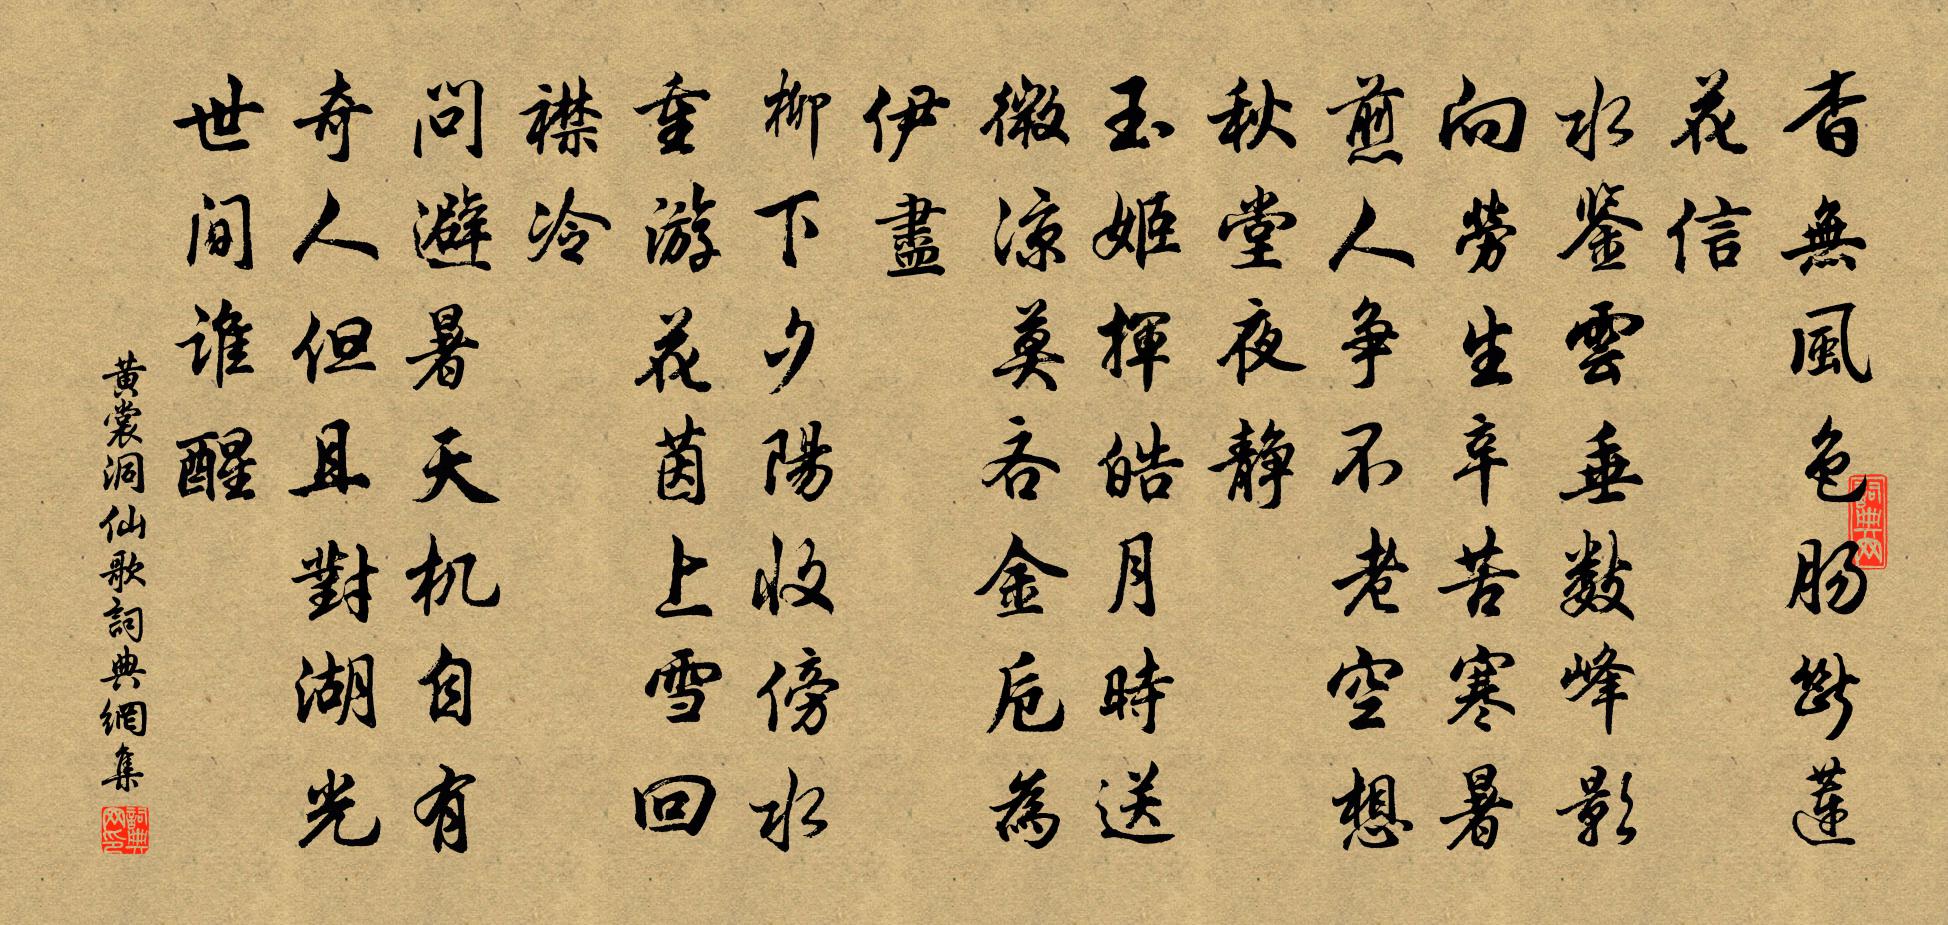 香無風色肠斷蓮
花信
水鉴雲垂數峰影
向勞生辛苦寒暑
煎人争不老空想
秋堂夜静
玉姬揮皓月時送
微凉莫吝金卮為
伊盡
柳下夕陽收傍水
重游花茵上雪回
襟冷
問避暑天机自有
奇人但且對湖光
世间谁醒
黄裳洞仙歌詞典網集
詞典网
詞典网印